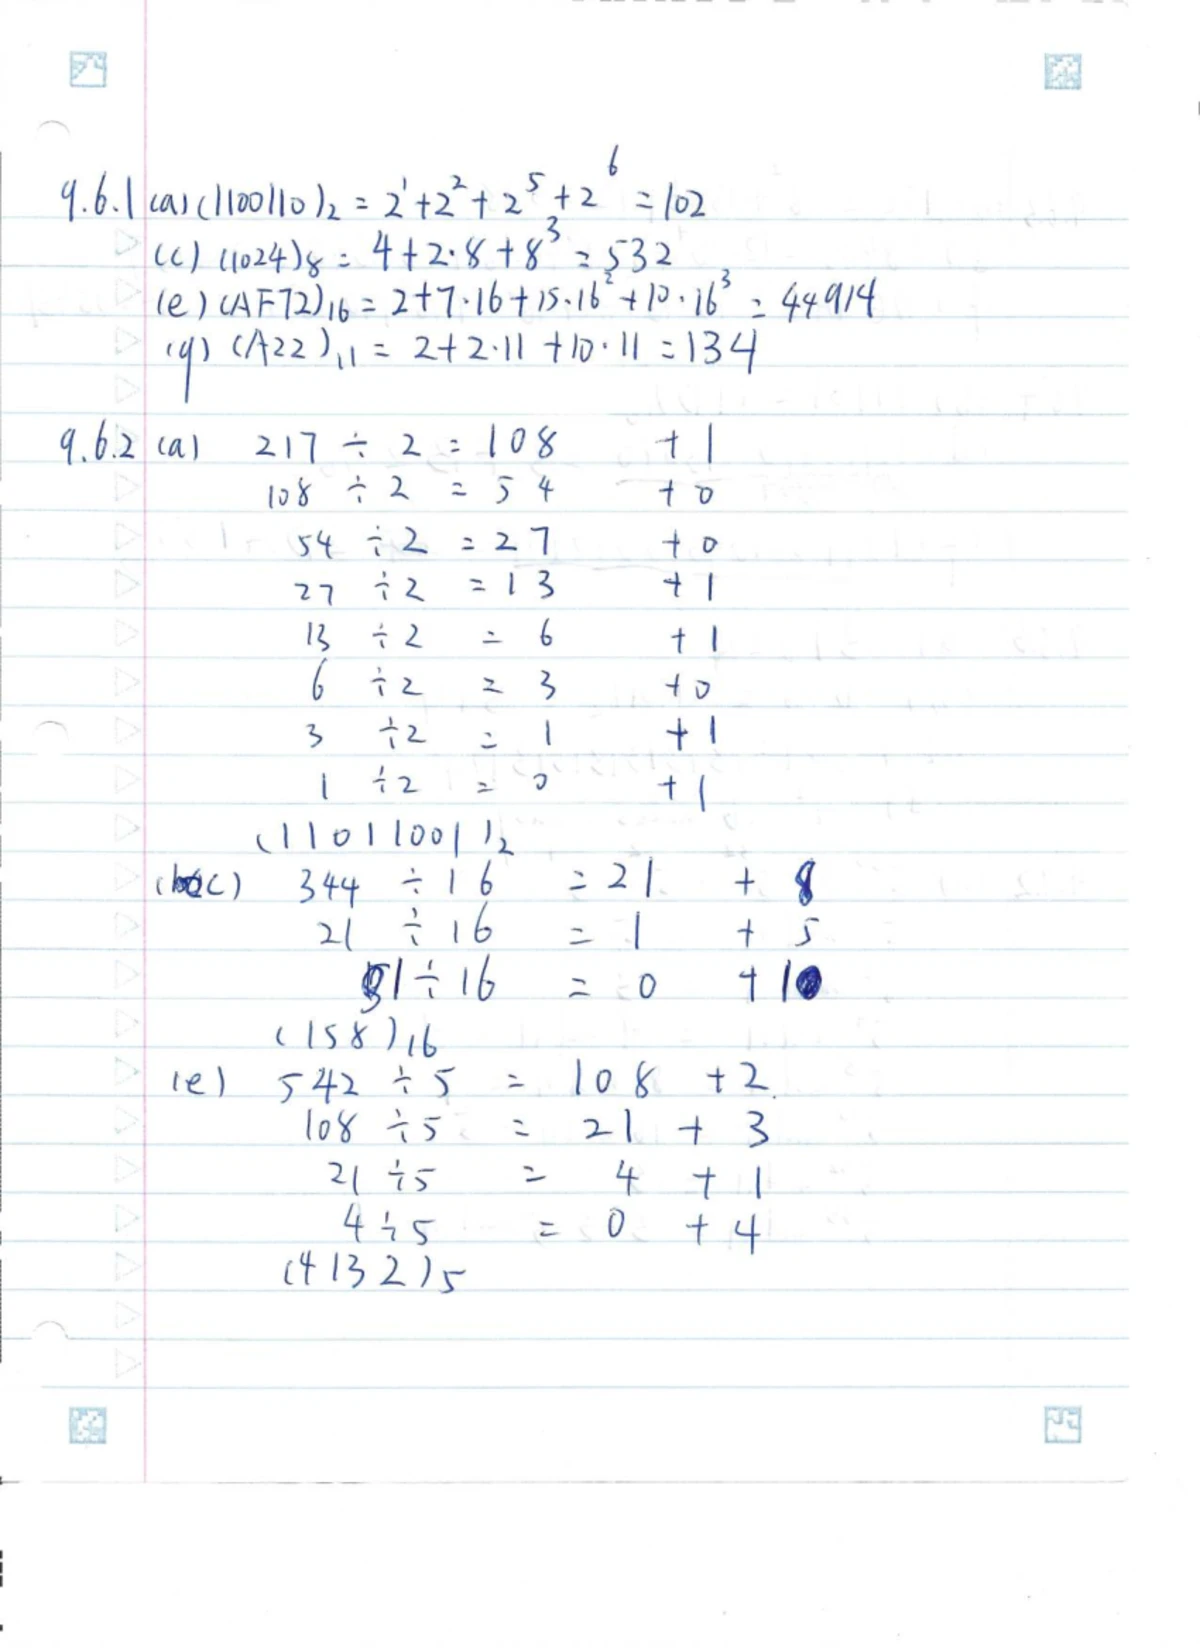 9.6.1 (a) (1100110)₂ = 2¹ + 2² + 2⁵ + 2⁶ = 102
(c) (1024)₈ = 4 + 2·8 + 8³ = 532
(e) (AF72)₁₆ = 2 + 7·16 + 15·16² + 10·16³ = 44914
(g) (A22)₁₁ = 2 + 2·11 + 10·11 = 134
9.6.2 (a) 217 ÷ 2 = 108 + 1
108 ÷ 2 = 54 + 0
54 ÷ 2 = 27 + 0
27 ÷ 2 = 13 + 1
13 ÷ 2 = 6 + 1
6 ÷ 2 = 3 + 0
3 ÷ 2 = 1 + 1
1 ÷ 2 = 0 + 1
(11011001)₂
(c) 344 ÷ 16 = 21 + 8
21 ÷ 16 = 1 + 5
1 ÷ 16 = 0 + 1
(158)₁₆
(e) 542 ÷ 5 = 108 + 2
108 ÷ 5 = 21 + 3
21 ÷ 5 = 4 + 1
4 ÷ 5 = 0 + 4
(4132)₅